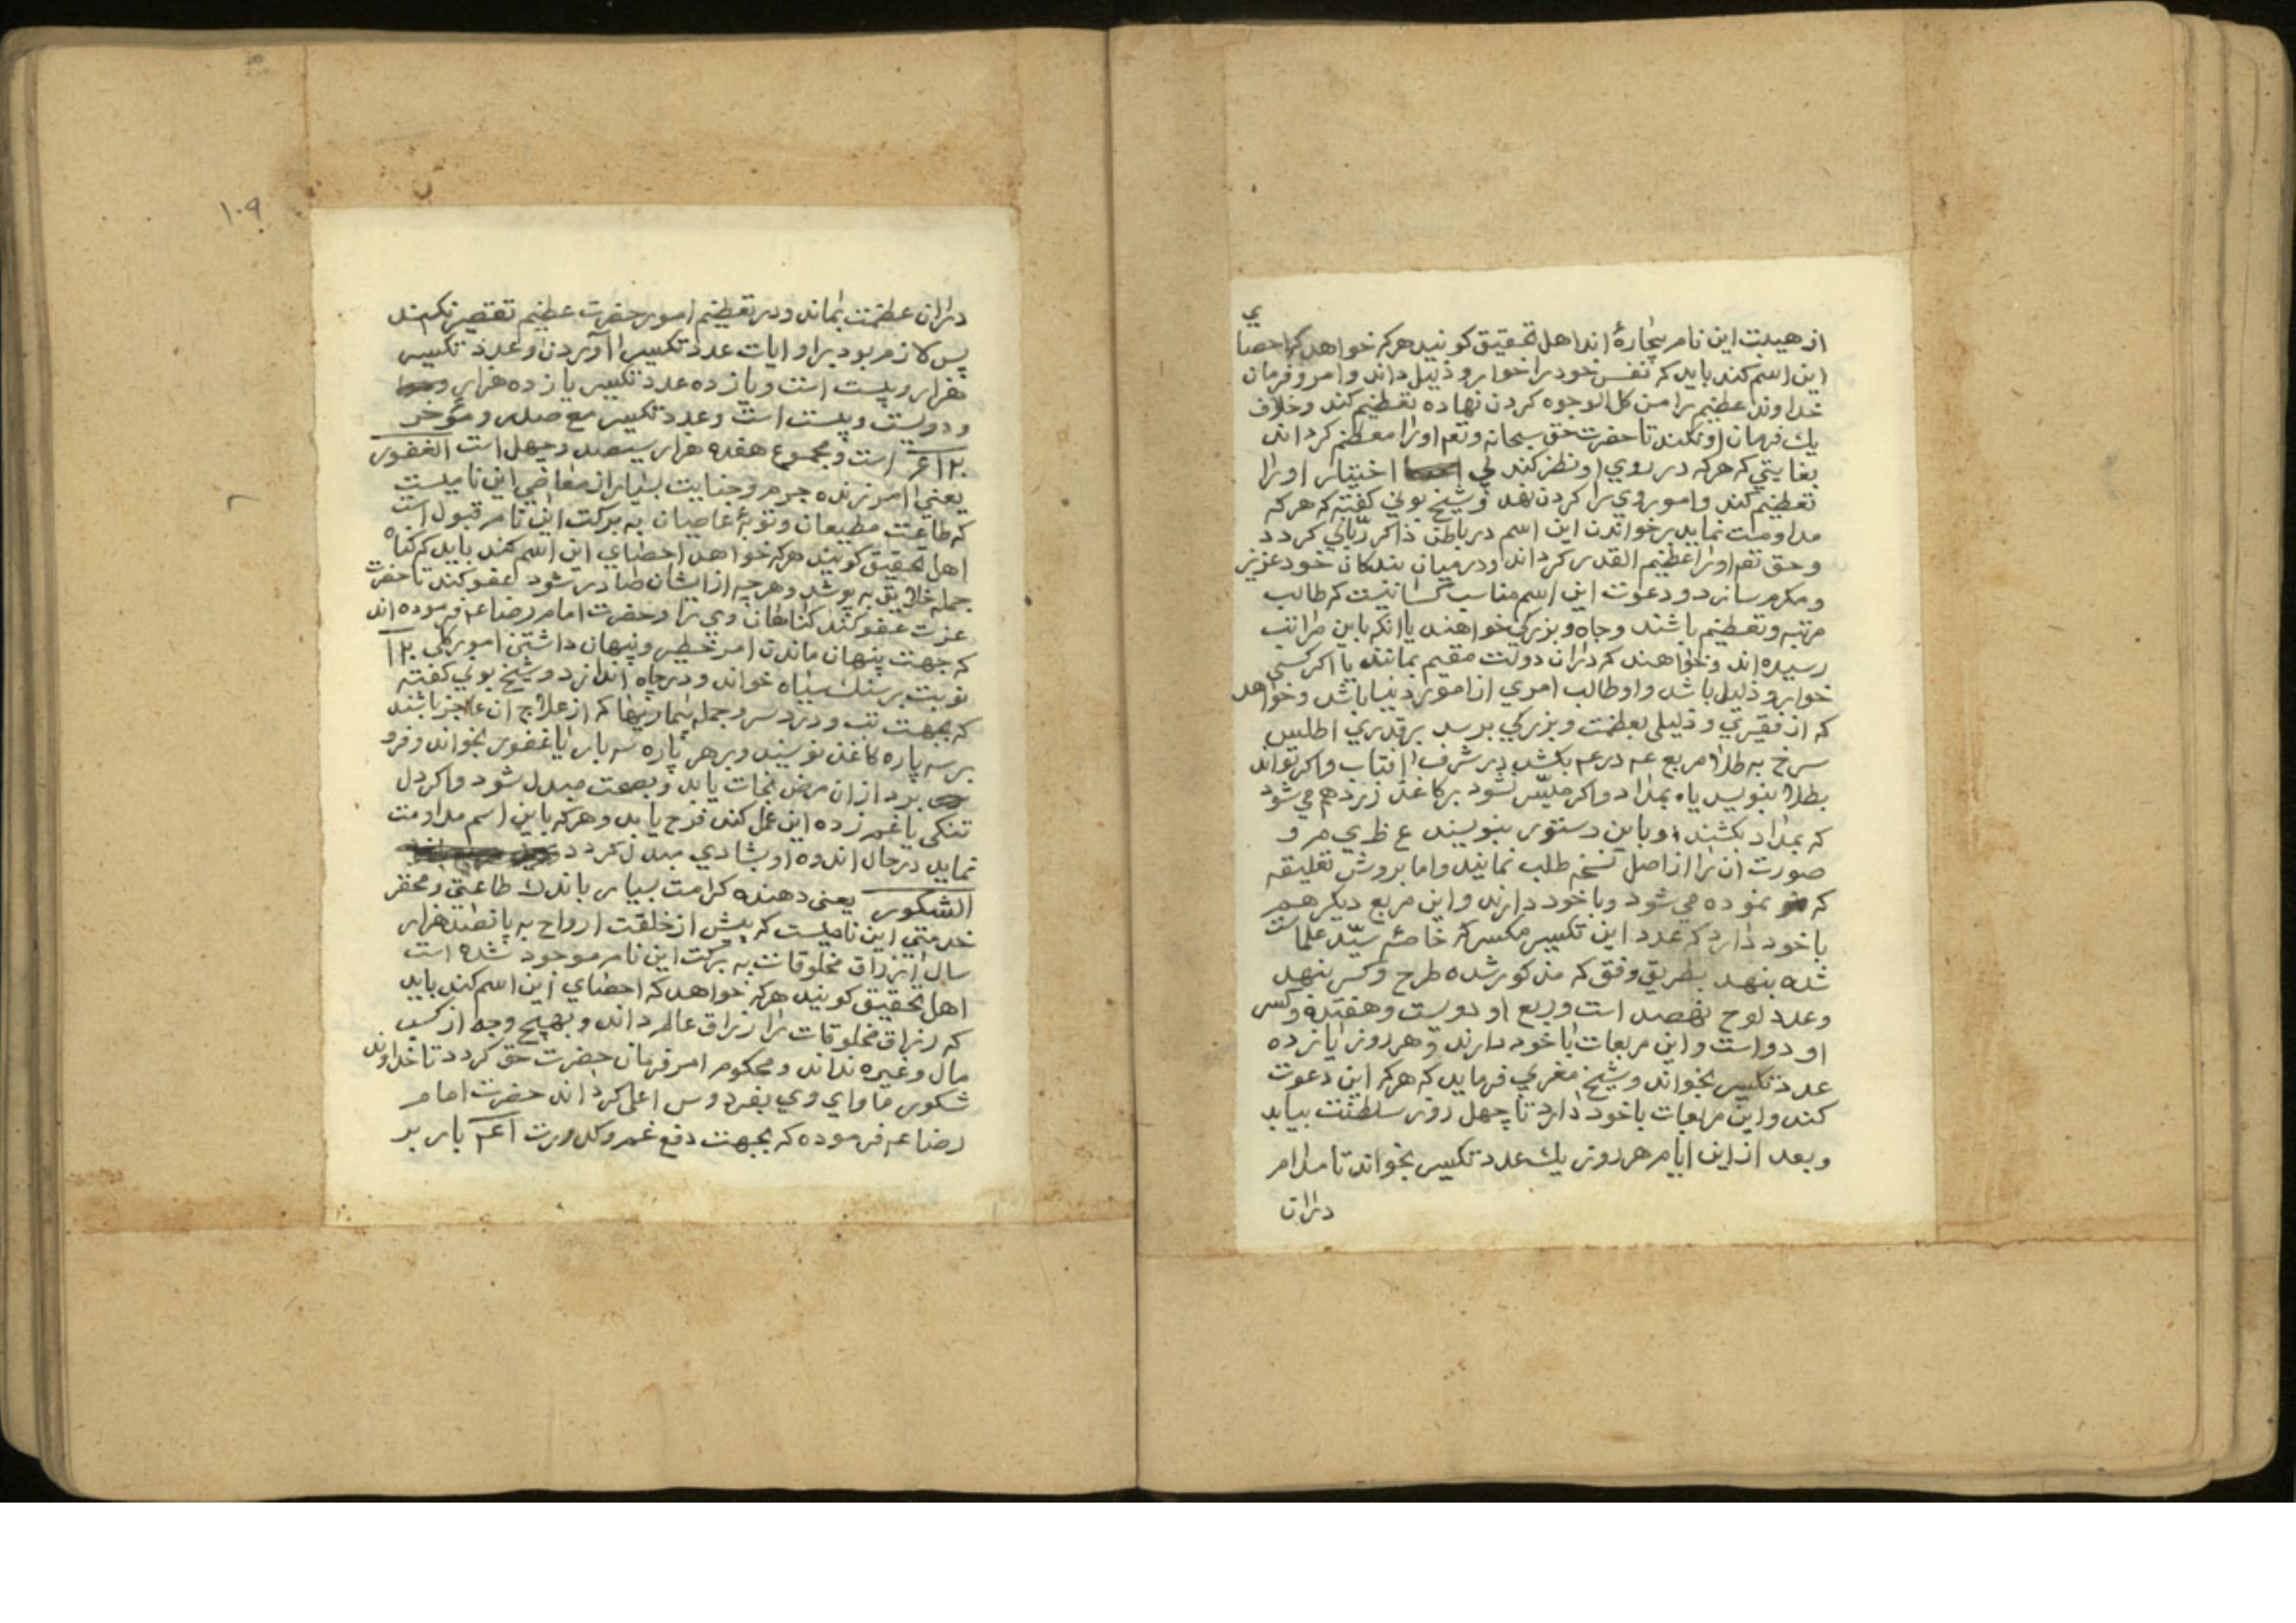 از هیبت این نام بیچارهٔ اند اهل تحقیق کویند هرکه خواهد که احصای
این اسم کند باید که نفس خود را خوار و ذلیل داند و امر و فرمان
خداوند عظیم را من کل الوجوه کردن نهاده تعظیم کند و خلاف
یك فرمان او نکند تا حضرت حق سبحانه وتع اورا معظم کرداند
بغایتي که هرکه در روي او نظر کند بي اختیار اورا
تعظیم کند و امور وي را کردن نهد و شیخ بوني کفته که هرکه
مداومت نماید بر خواندن این اسم در باطن ذاکر ربّاني کردد
و حق تع اورا عظیم القدر کرداند و در میان بندکان خود عزیز
و مکرم سازد و دعوت این اسم مناسب کسانیست که طالب
مرتبه و تعظیم باشند و جاه و بزرکي خواهند یا انکه باین مراتب
رسیده اند و خواهند که دران دولت مقیم بمانند یا اکر کسي
خوار و ذلیل باشد و او طالب اموي از امور دنیا باشد و خواهد
که از فقیري و ذلیلی بعظمت و بزرکي برسد برقدري اطلس
سرخ به طلا مربع عـه درعـه بکشد در شرف افتاب و اکر نتواند
بطلا بنویسد یا بمداد و اکر میسّر نشود بر کاغذ زرد هم مي شود
که بمداد بکشند و باین دستور بنویسند ع ظ ي م و
صورت ان را از اصل نسخه طلب نمایند و اما بروش تعلیقه
که نموده مي شود و با خود دارند و این مربع دیکر هم
با خود دارد که عدد این تکسیر مکسر که خاصهٔ سیّد علماست
شده بنهد بطریق وفق که مذکور شده طرح و کسر بنهد
وعدد لوح نهصد است و ربع او دویست و هفتده و کسر
او دو است و این مربعات با خود دارند و هر روز یازده
عدد تکسیر بخواند و شیخ مغربي فرماید که هرکه این دعوت
کند و این مربعات با خود دارد تا چهل روز سلطنت بیابد
و بعد از این ایام هر روز یك عدد تکسیر بخواند تا مدام
دران
١٠٩
دران عظمت بماند و در تعظیم امور حضرت عظیم تقصیر نکند
پس لازم بود برا و ایات عدد تکسیر را آوردن و عدد تکسیر
هزار و بیست است و یازده عدد تکسیر یازده هزار و
و دویست و بیست است و عدد تکسیر مع صدر و مؤخر
است و مجموع هفده هزار سیصد و چهل است الغفور
یعني امرزنده جرم و جنایت بسیار از معاصي این نامیست
که طاعت مطیعان و توبهٔ عاصیان به برکت این نام قبول است
اهل تحقیق کویند هرکه خواهد احصاي این اسم کند باید که کناه
جمله خلایق به پوشد و هرچه از ایشان صادر شود عفو کند تا حضرت
عزت عفو کند کناهان وي را و حضرت امام رضا عـم فرموده اند
که جهت پنهان ماندن امر خطیر و پنهان داشتن امور کلی
نوبت بر سنك سیاه خواند و در چاه اندازد و شیخ بوني کفته
که بجهت تب و درد سر و جمله بیماریها که از علاج ان عاجز باشند
بر سه پاره کاغذ نویسند و بر هر پاره سه بار یا غفور بخواند و فرو
برد از ان مرض نجات یابد و بصحت مبدل شود و اکر دل
تنکی یا غم زده این عمل کند فرح یابد و هرکه باین اسم مداومت
نماید در حال اندوه او بشادي مبدل کردد
الشکور یعنی دهنده کرامت بسیار باندك طاعتي و محقر
خدمتي این نامیست که پیش از خلقت ارواح به پانصد هزار
سال ارزاق مخلوقات به برکت این نام موجود شده است
اهل تحقیق کویند هرکه خواهد که احصاي این اسم کند باید
که رزاق مخلوقات را رزاق عالم داند و بهیچ وجه از کسب
مال و غیره نداند و محکوم امر فرمان حضرت حق کردد تا خداوند
شکور ماواي وي بفردوس اعلی کرداند حضرت امام
رضا عـم فرموده که بجهت دفع غم و کدورت بار بر